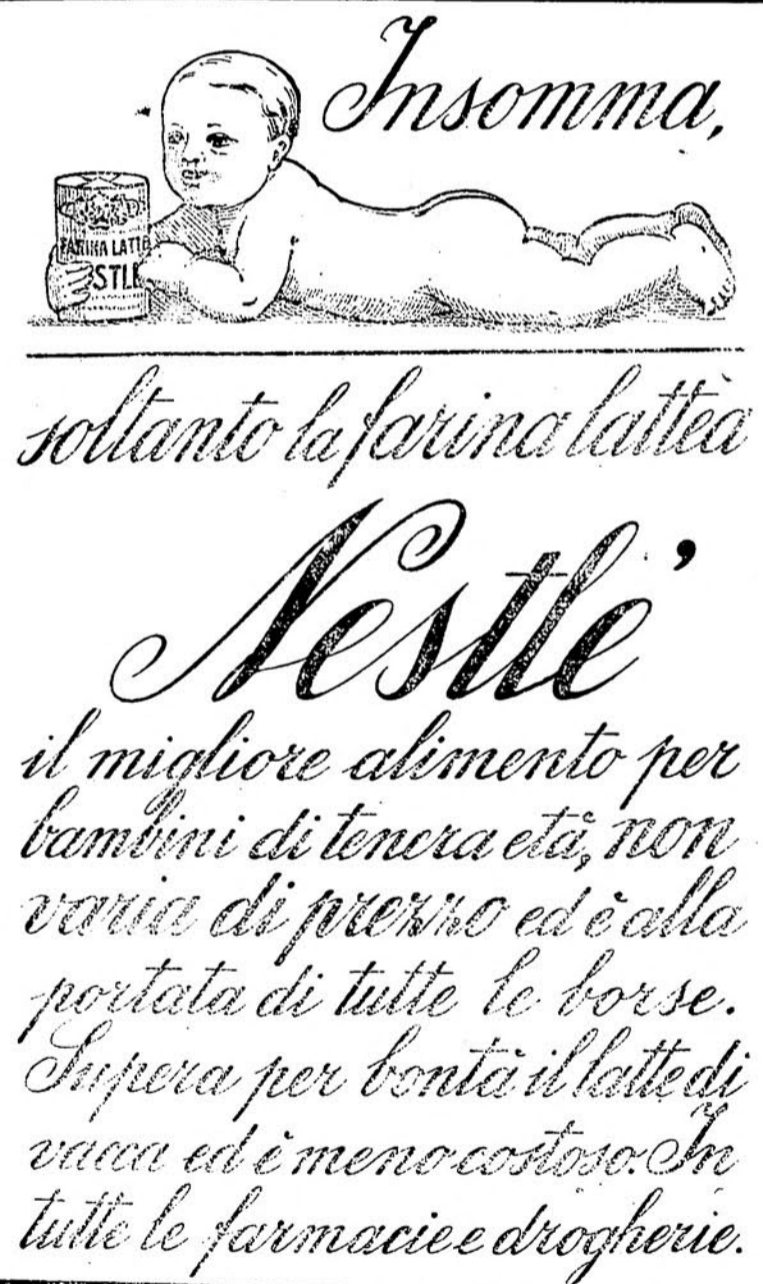 Insomma,
FARINA LATTE
STLE
soltanto la farina lattèa
Nestlé
il migliore alimento per
bambini di tenera età, non
varia di prezzo ed è alla
portata di tutte le borse.
Supera per bontà il latte di
vacca ed è meno costoso. In
tutte le farmacie e drogherie.